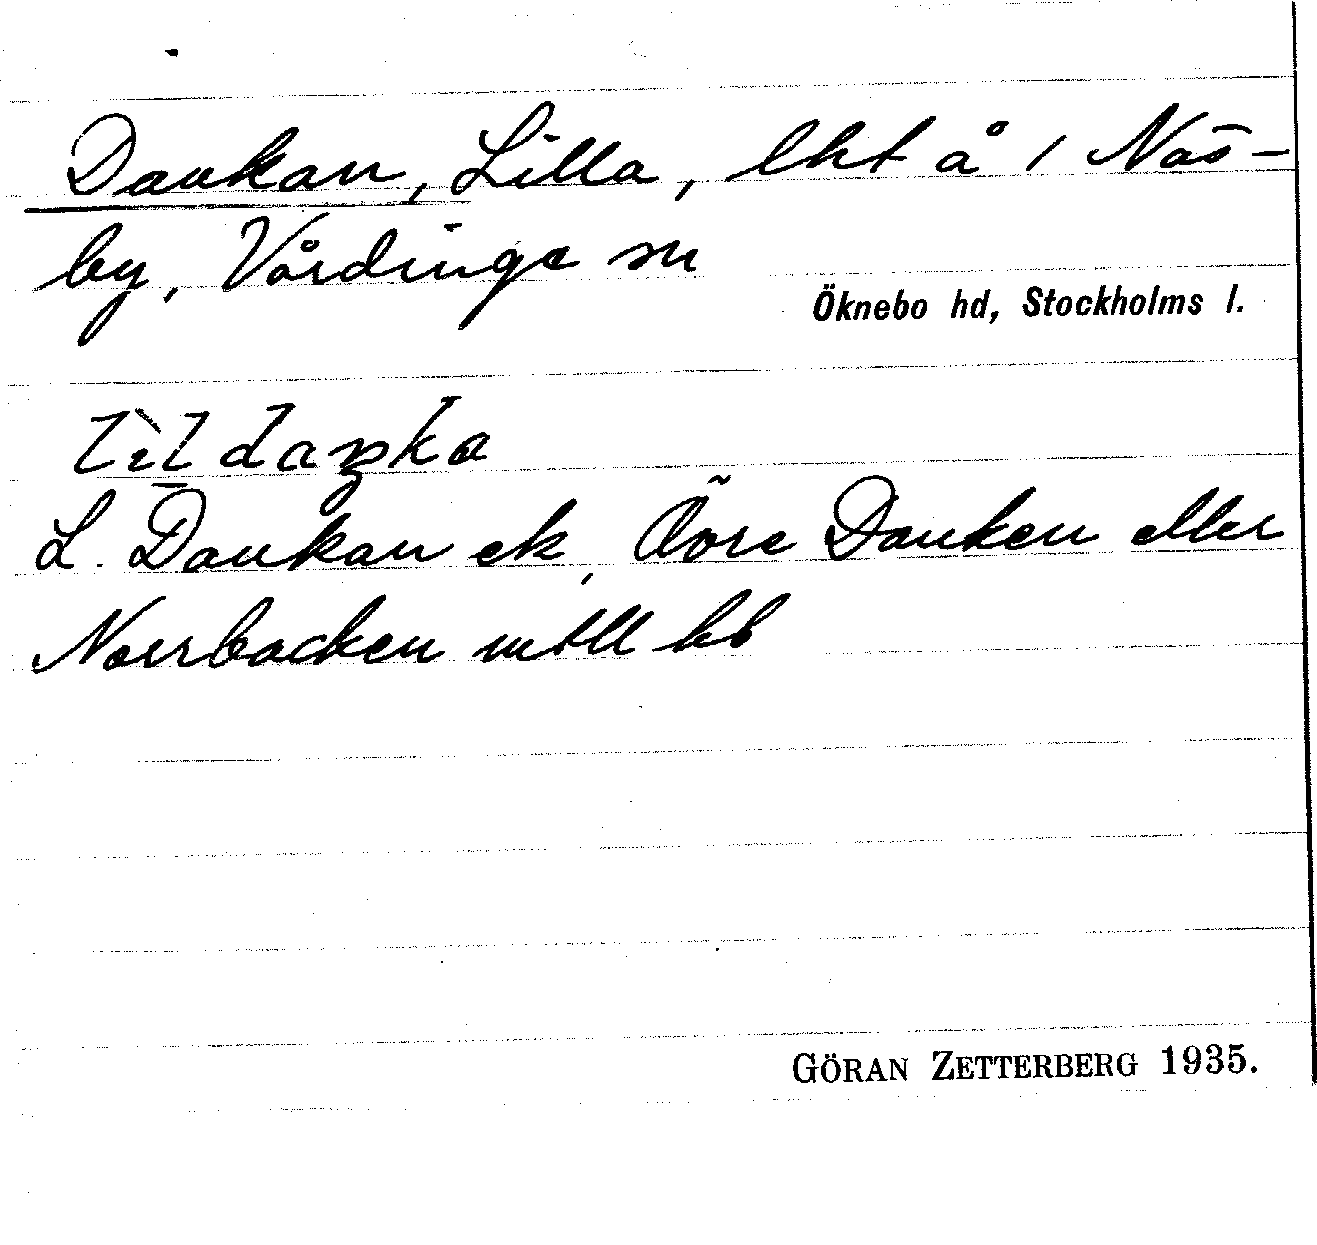 Dankan, Lilla, lht å 1 Näs-
by, Vårdinge sn
Öknebo hd, Stockholms l.
L. Dankan ek, Övre Danken eller
Norrbacken mtll kb
GÖRAN ZETTERBERG 1935.